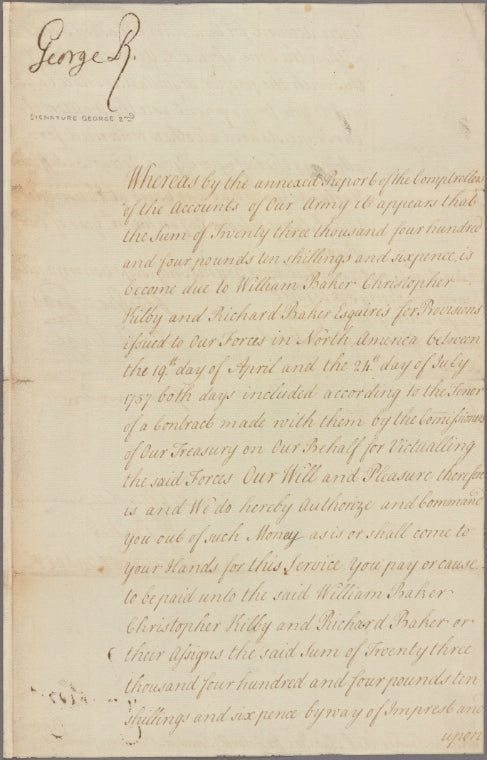 George R.
SIGNATURE GEORGE 2nd
Whereas by the annexed Report of the Comptrollers
of the Accounts of Our Army it appears that
the Sum of Twenty three thousand four hundred
and four pounds ten shillings and sixpence is
become due to William Baker Christopher
Kilby and Richard Baker Esquires for Provisions
issued to Our Forces in North America between
the 19th day of April and the 24th day of July
1757 both days included according to the Tenor
of a Contract made with them by the Commissioners
of Our Treasury on Our Behalf for Victualling
the said Forces Our Will and Pleasure therefore
is and We do hereby Authorize and Command
You out of such Money as is or shall come to
your Hands for this Service You pay or cause
to be paid unto the said William Baker
Christopher Kilby and Richard Baker or
their Assigns the said Sum of Twenty three
thousand four hundred and four pounds ten
shillings and six pence by way of Imprest and
upon